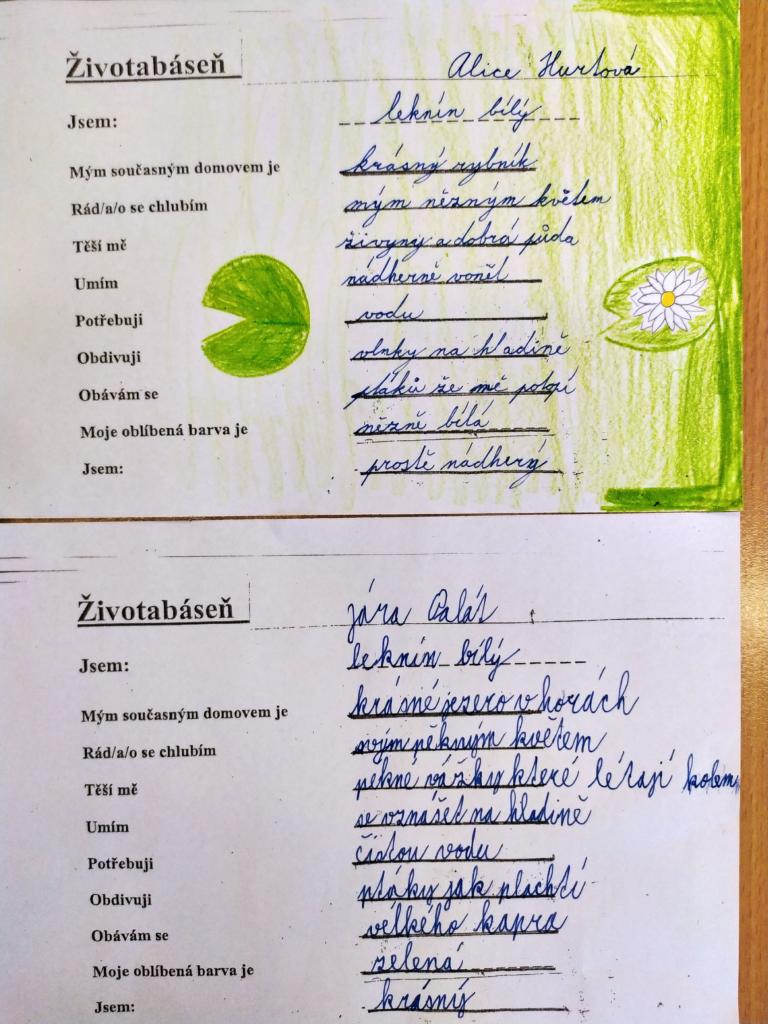 Životabáseň Alice Hurtová
Jsem: leknín bílý
Mým současným domovem je krásný rybník
Rád/a/o se chlubím mým něžným květem
Těší mě živyny a dobrá půda
Umím nádherně vonět
Potřebuji vodu
Obdivuji vlnky na hladině
Obávám se ptáků že mě potopí
Moje oblíbená barva je něžně bílá
Jsem: prostě nádherý
Životabáseň jára Palát
Jsem: leknín bílý
Mým současným domovem je krásné jezero v horách
Rád/a/o se chlubím svým pěkným květem
Těší mě pěkné vážky které létají kolem
Umím se vznášet na hladině
Potřebuji čistou vodu
Obdivuji ptáky jak plachtí
Obávám se velkého kapra
Moje oblíbená barva je zelená
Jsem: krásný